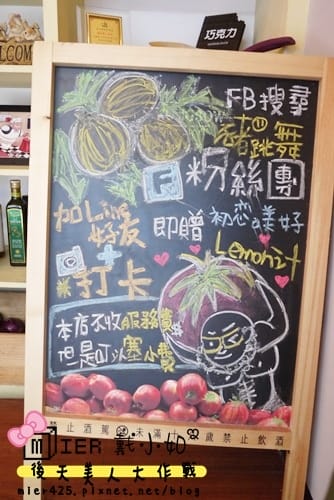 巧克力
WELCOME
FB搜尋
豬跳舞
粉絲團
加Line
好友
即贈
初戀ㄉ美好
+
Lemon汁
打卡
本店不收服務費
但是可以塞小費
止酒駕
未滿
歲禁止飲酒
MIER 戴小如
後天美人大作戰
mier425.pixnet.net/blog